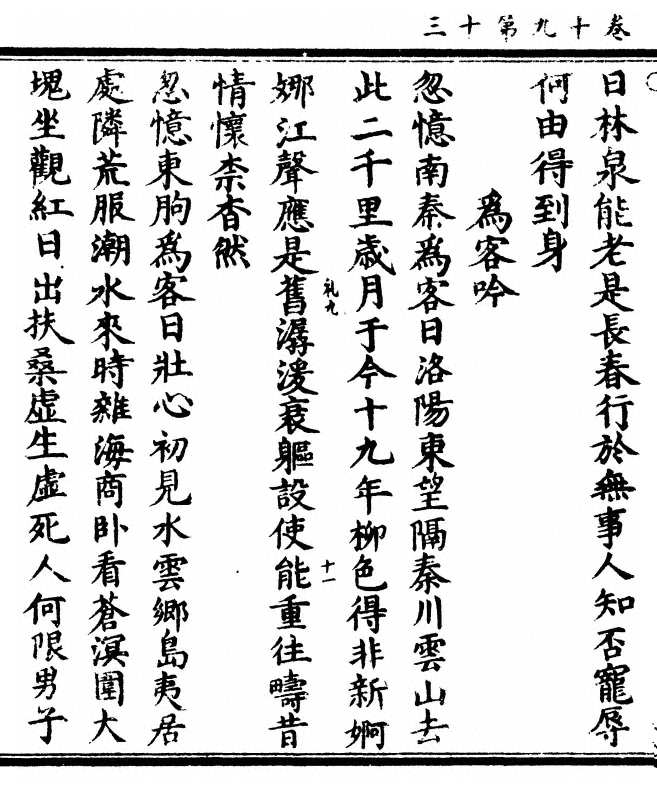 卷十九第十三
日林泉能老是長春行於無事人知否寵辱
何由得到身
為客吟
忽憶南秦為客日洛陽東望隔秦川雲山去
此二千里歲月于今十九年柳色得非新婀
娜江聲應是舊潺湲衰軀設使能重往疇昔
情懷柰杳然
忽憶東朐為客日壯心初見水雲鄉島夷居
處隣荒服潮水來時雜海商卧看蒼溟圍大
塊坐觀紅日出扶桑虛生虛死人何限男子
札九
十一